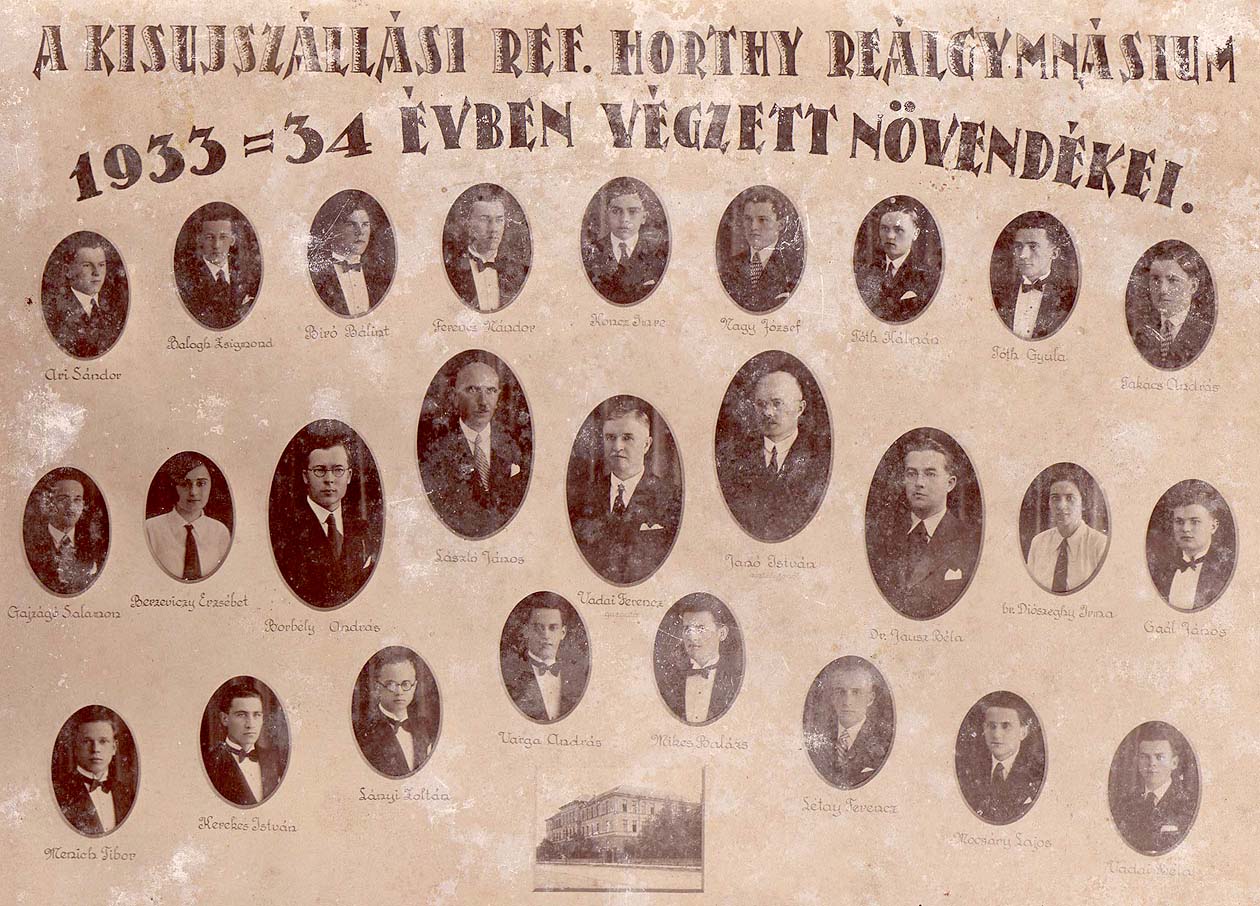 A KISUJSZÁLLÁSI REF. HORTHY REÁLGYMNÁSIUM
1933=34 ÉVBEN VÉGZETT NÖVENDÉKEI.
Ari Sándor
Balogh Zsigmond
Biró Bálint
Ferencz Nándor
Koncz Imre
Nagy József
Tóth Kálmán
Tóth Gyula
Takács András
Gajzágó Salamon
Berzeviczy Erzsébet
Borbély András
László János
Vadai Ferencz
igazgató
Janó István
Dr. Jausz Béla
br. Diószeghy Irma
Gaál János
Menich Tibor
Kerekes István
Lányi Zoltán
Varga András
Mikes Balázs
Létay Ferencz
Mocsáry Lajos
Vadai Béla